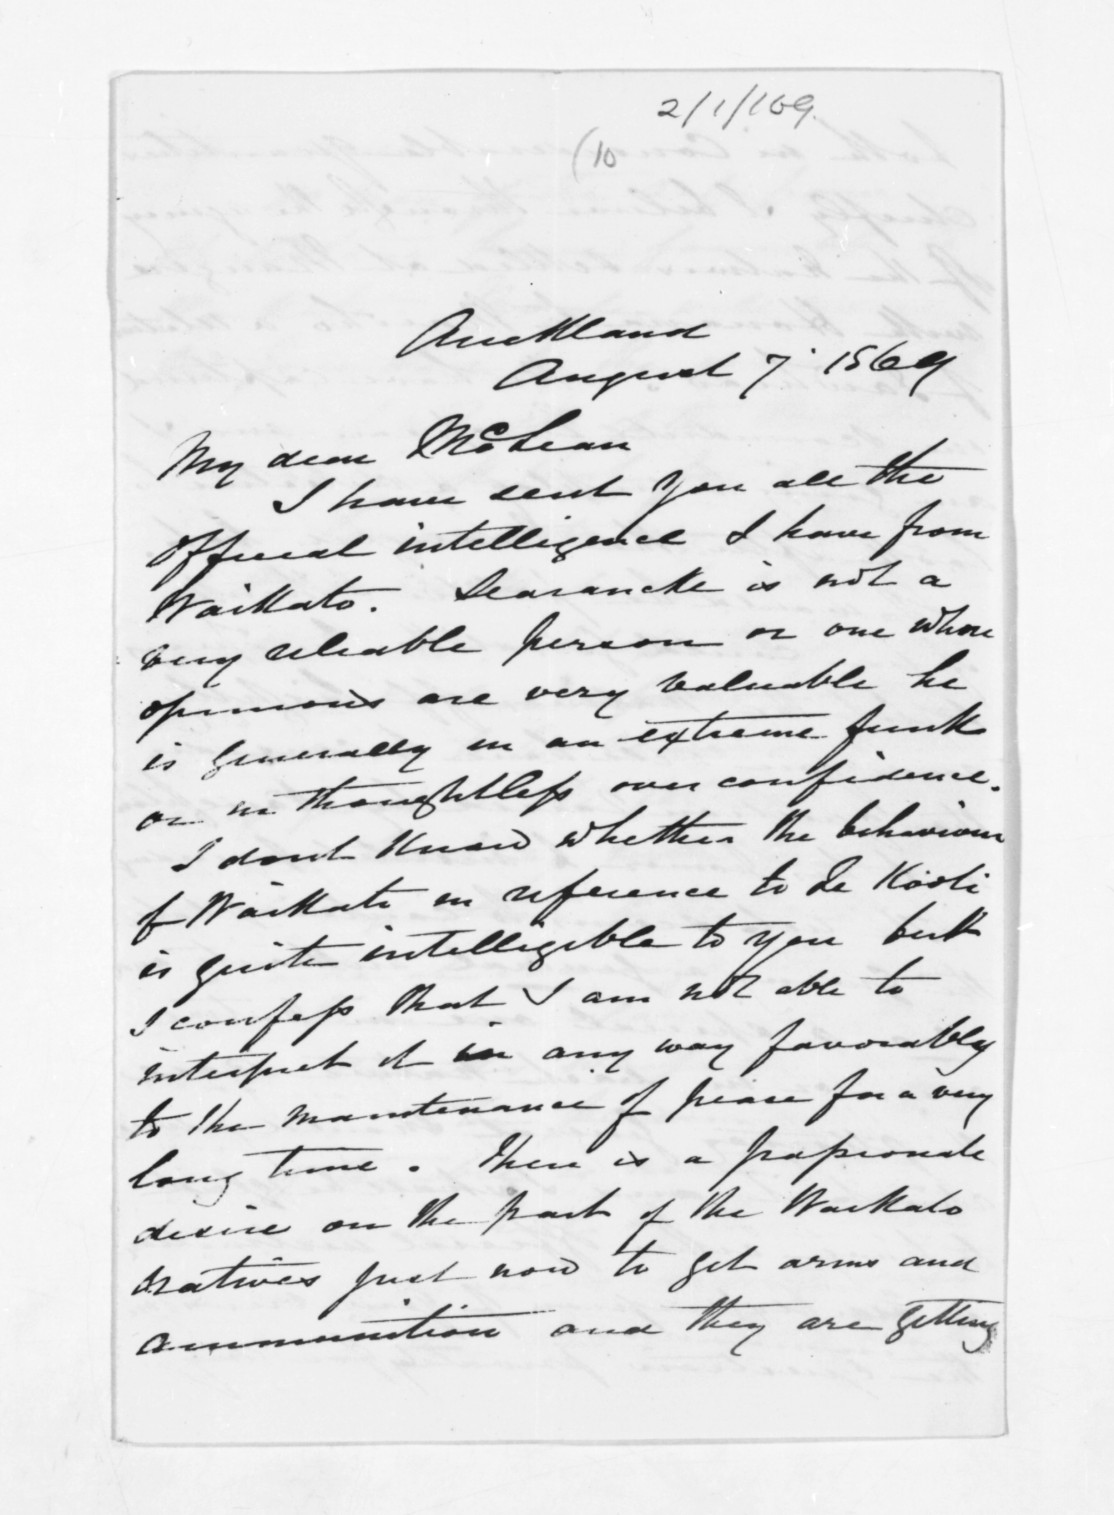 2/1/169.
(10
Auckland
August 7 1869
My dear McLean
I have sent you all the
official intelligence I have from
Waikato. Searancke is not a
very reliable person or one whose
opinions are very valuable he
is generally in an extreme funk
or in thoughtless over confidence.
I dont know whether the behaviour
of Waikato in reference to Te Kooti
is quite intelligible to you but
I confess that I am not able to
interpret it in any way favorably
to the maintenance of peace for a very
long time. There is a passionate
desire on the part of the Waikato
natives just now to get arms and
ammunition and they are getting